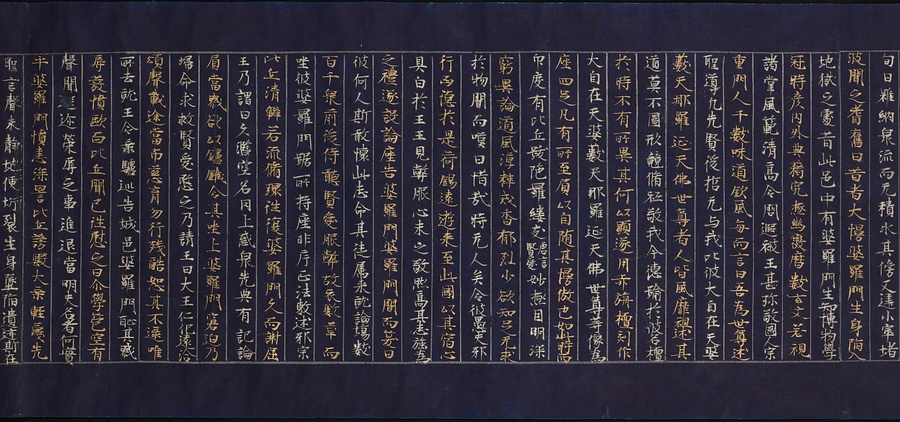 旬日雖納眾流而无積水其傍又建小窣堵
波聞之耆舊曰昔者大慢婆羅門生身陷入
地獄之處昔此邑中有婆羅門生知博物學
冠時彥內外典籍究極幽微曆數玄文若視
諸掌風範清高令聞遐被王甚珍敬國人宗
重門人千數味道欽風每而言曰吾為世出述
聖導凡先賢後哲无与我比彼大自在天婆
藪天那羅延天佛世尊者人皆風靡祖述其
道莫不圖形競脩祗敬我今德踰於彼名擅
於時不有所異其何以顯遂用赤旃檀刻作
大自在天婆藪天那羅延天佛世尊等像為
座四足凡有所至負以自随其慢傲也如此時西
印度有比丘跋陀羅縷支唐言賢愛妙極因明深
窮異論道風淳粹戒香郁烈少欲知足无求
於物聞而嘆曰惜哉時无人矣令彼愚夫敢
行凶德於是荷錫遠遊來至此國以其宿心
具白於王王見弊服心未之敬然高其志強為
之禮遂設論座告婆羅門婆羅門聞而笑曰
彼何人斯敢懷此志命其徒属來就論場數
百千眾前後侍聽賢愛服弊故衣敷草而
坐彼婆羅門踞所持座非斥正法敷述邪宗
比丘清辯若流循環往復婆羅門久而謝屈
王乃謂曰久濫虛名罔上惑眾先典有記論
負當戮欲以鑪鐵令其坐上婆羅門窘迫乃
歸命求救賢愛愍之乃請王曰大王仁化遠洽
頌聲載途當布慈育勿行殘酷恕其不逮唯
所去就王令乘驢巡告城邑婆羅門恥其戮
辱發憤歐血比丘聞已往慰之曰尒學苞空有
聲聞遐迩榮辱之事進退當明夫名者何實
乎婆羅門憤恚深詈比丘謗毀大乘輕蔑先
聖言聲未靜地便坼裂生身墜陷遺迹斯在